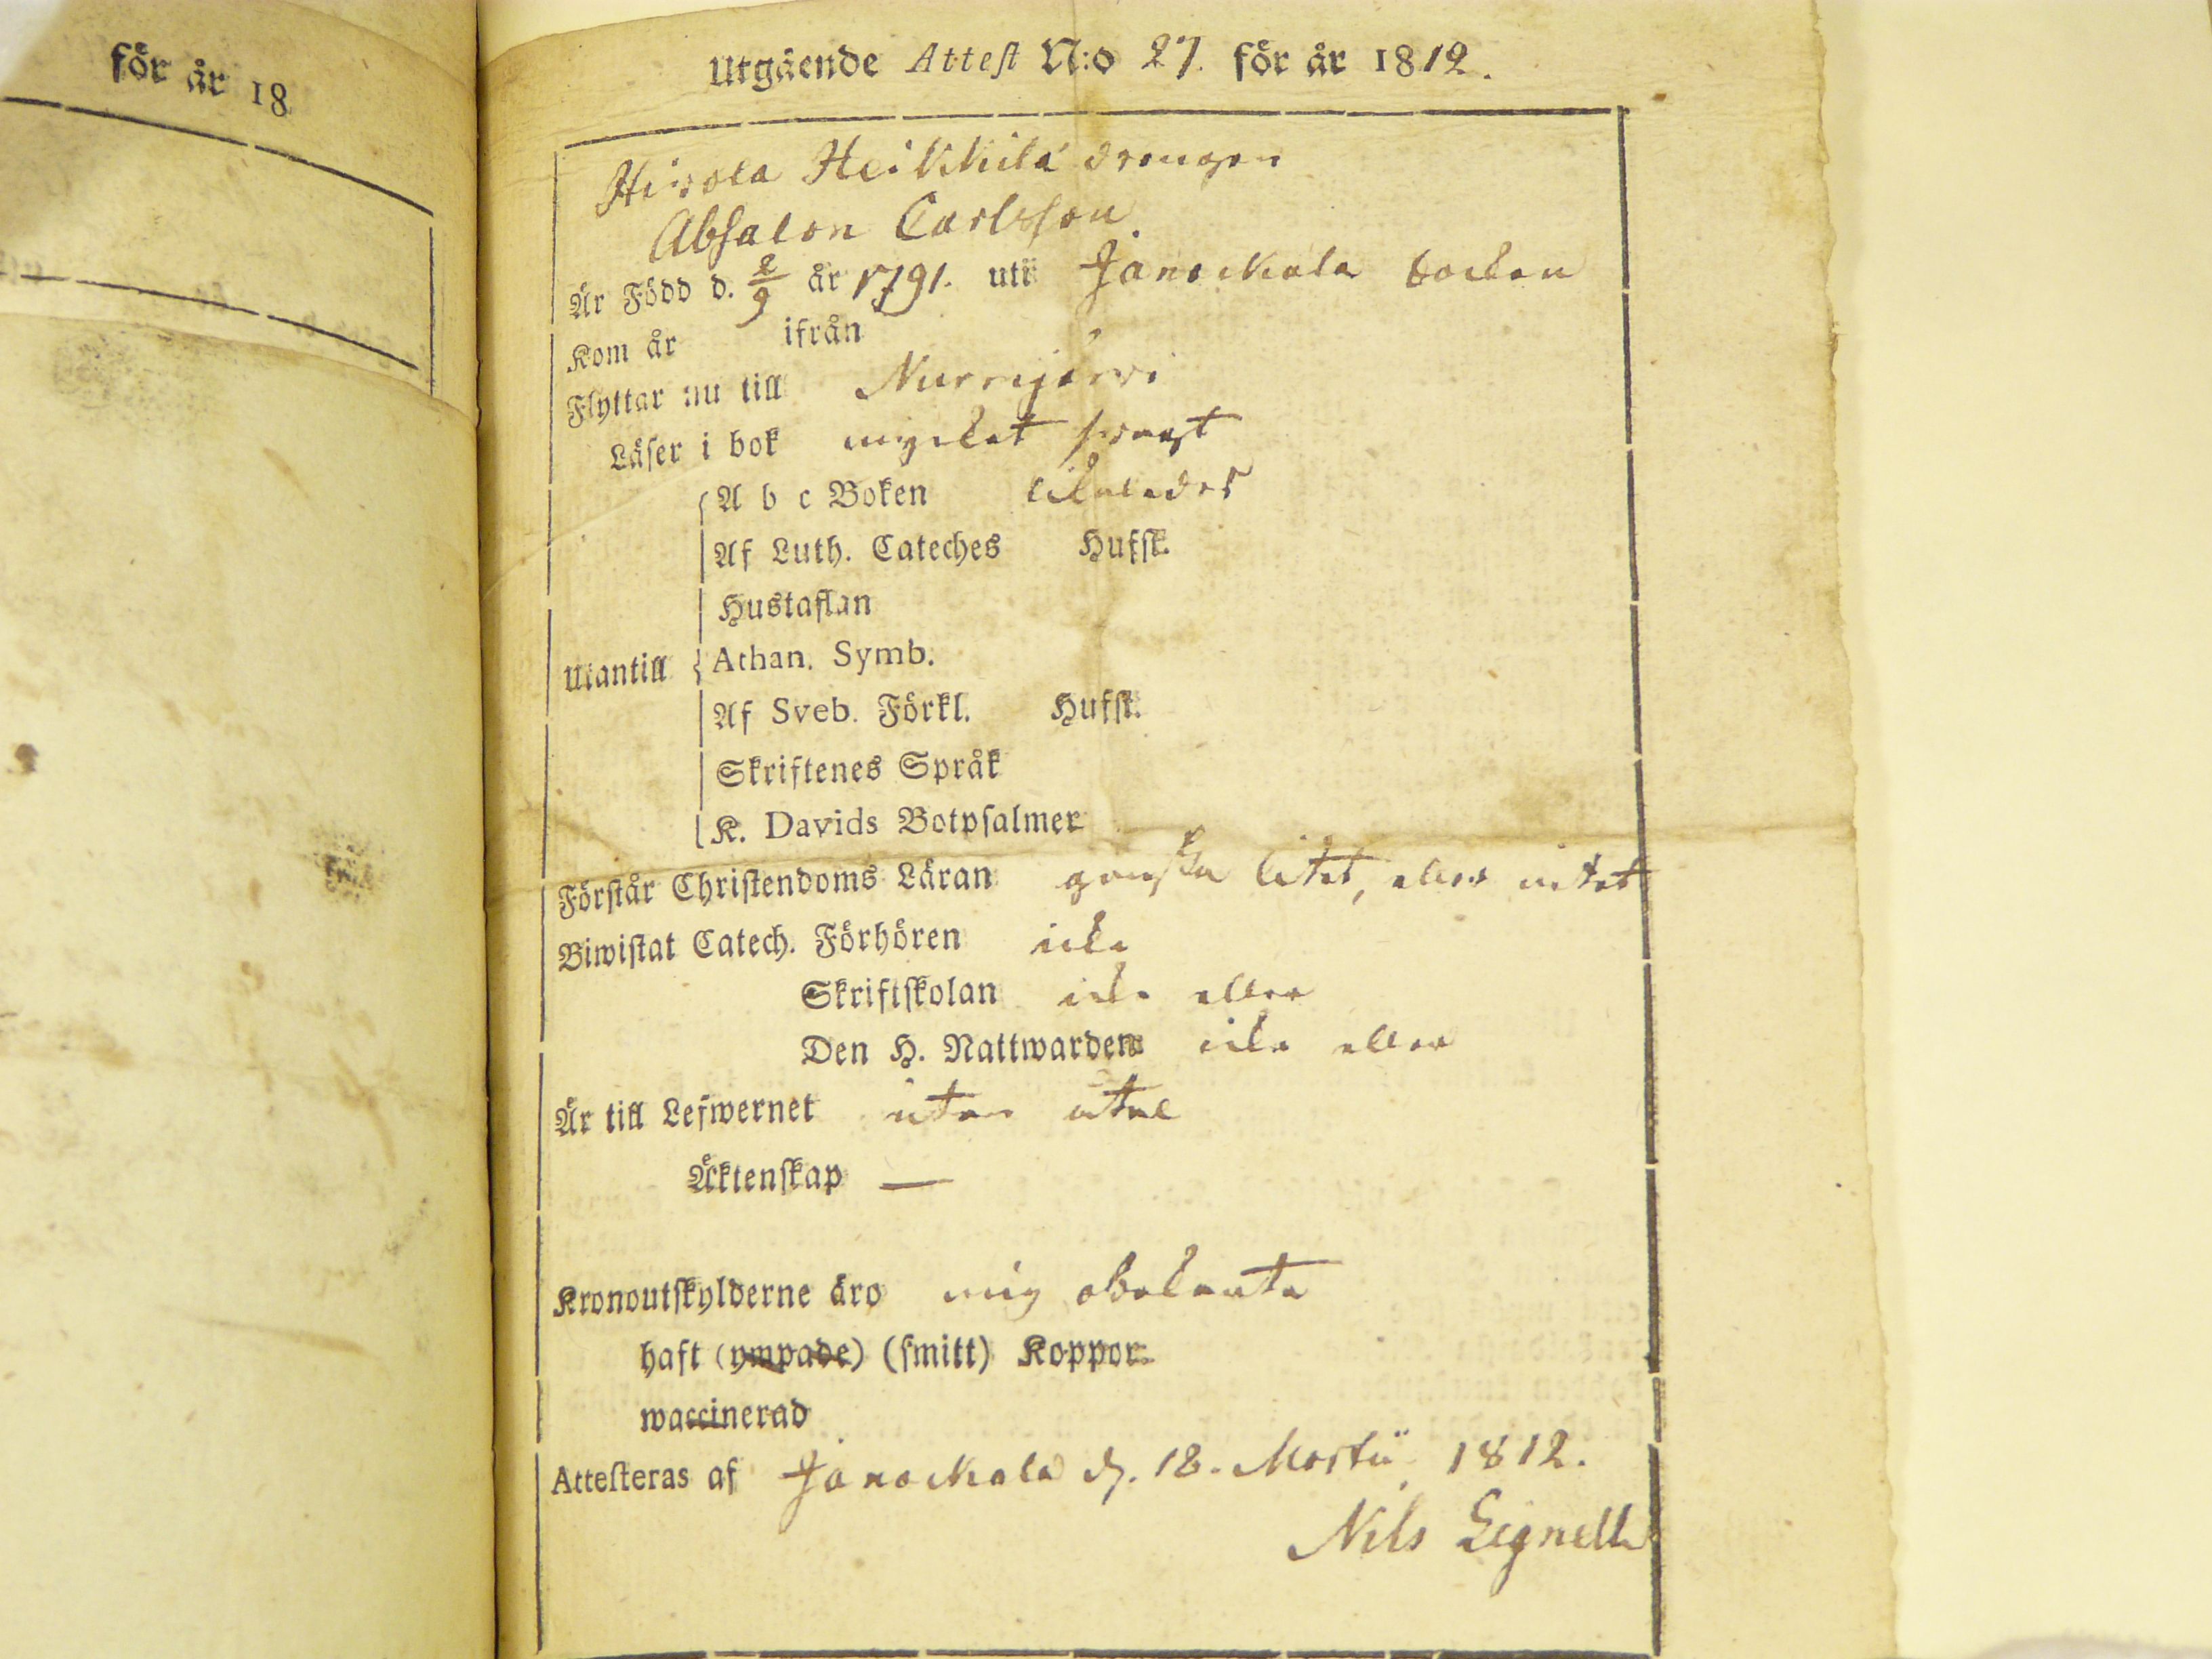 för år 18
Utgående Attest N:o 27. för år 1812.
Hirola Heikkilä drengen
Absalon Carlsson.
Är Född d. 2/9 år 1791. utï Janackala Socken
Kom år ifrån
Flyttar nu till Nurmijärvi
Läser i bok mycket svagt
A b c Boken likaledes
Af Luth. Cateches Hufst.
Hustaflan
Utantill Athan. Symb.
Af Sveb. Förkl. Hufst.
Skriftenes Språk
K. Davids Botpsalmer
Förstår Christendoms Läran ganska litet, eller intet
Biwistat Catech. Förhören icke
Skriftskolan icke eller
Den H. Nattwarden icke eller
Är till Lefwernet utan åtal
Äktenskap —
Kronoutskylderne äro mig obekanta
haft (ympade) (smitt) Koppor.
waccinerad
Attesteras af Janackala d. 18. Martii 1812.
Nils Lignell